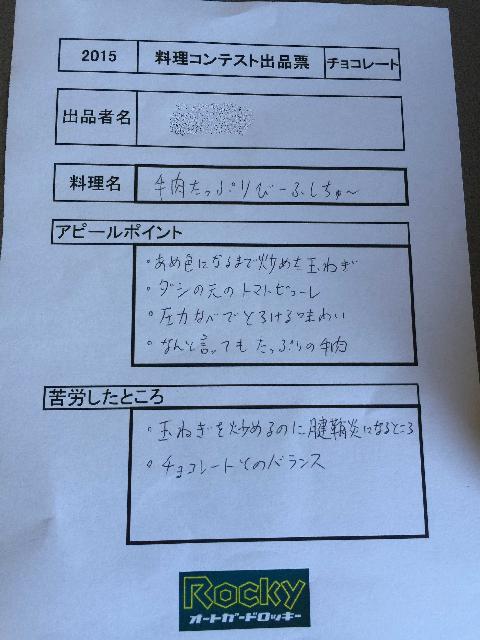 2015 料理コンテスト出品票 チョコレート
出品者名
料理名 牛肉たっぷりびーふしちゅ～
アピールポイント
・あめ色になるまで炒めた玉ねぎ
・ダシの元のトマトピューレ
・圧力なべでとろける味わい
・なんと言ってもたっぷりの牛肉
苦労したところ
・玉ねぎを炒めるのに腱鞘炎になるところ
・チョコレートとのバランス
ROCKY
オートガードロッキー